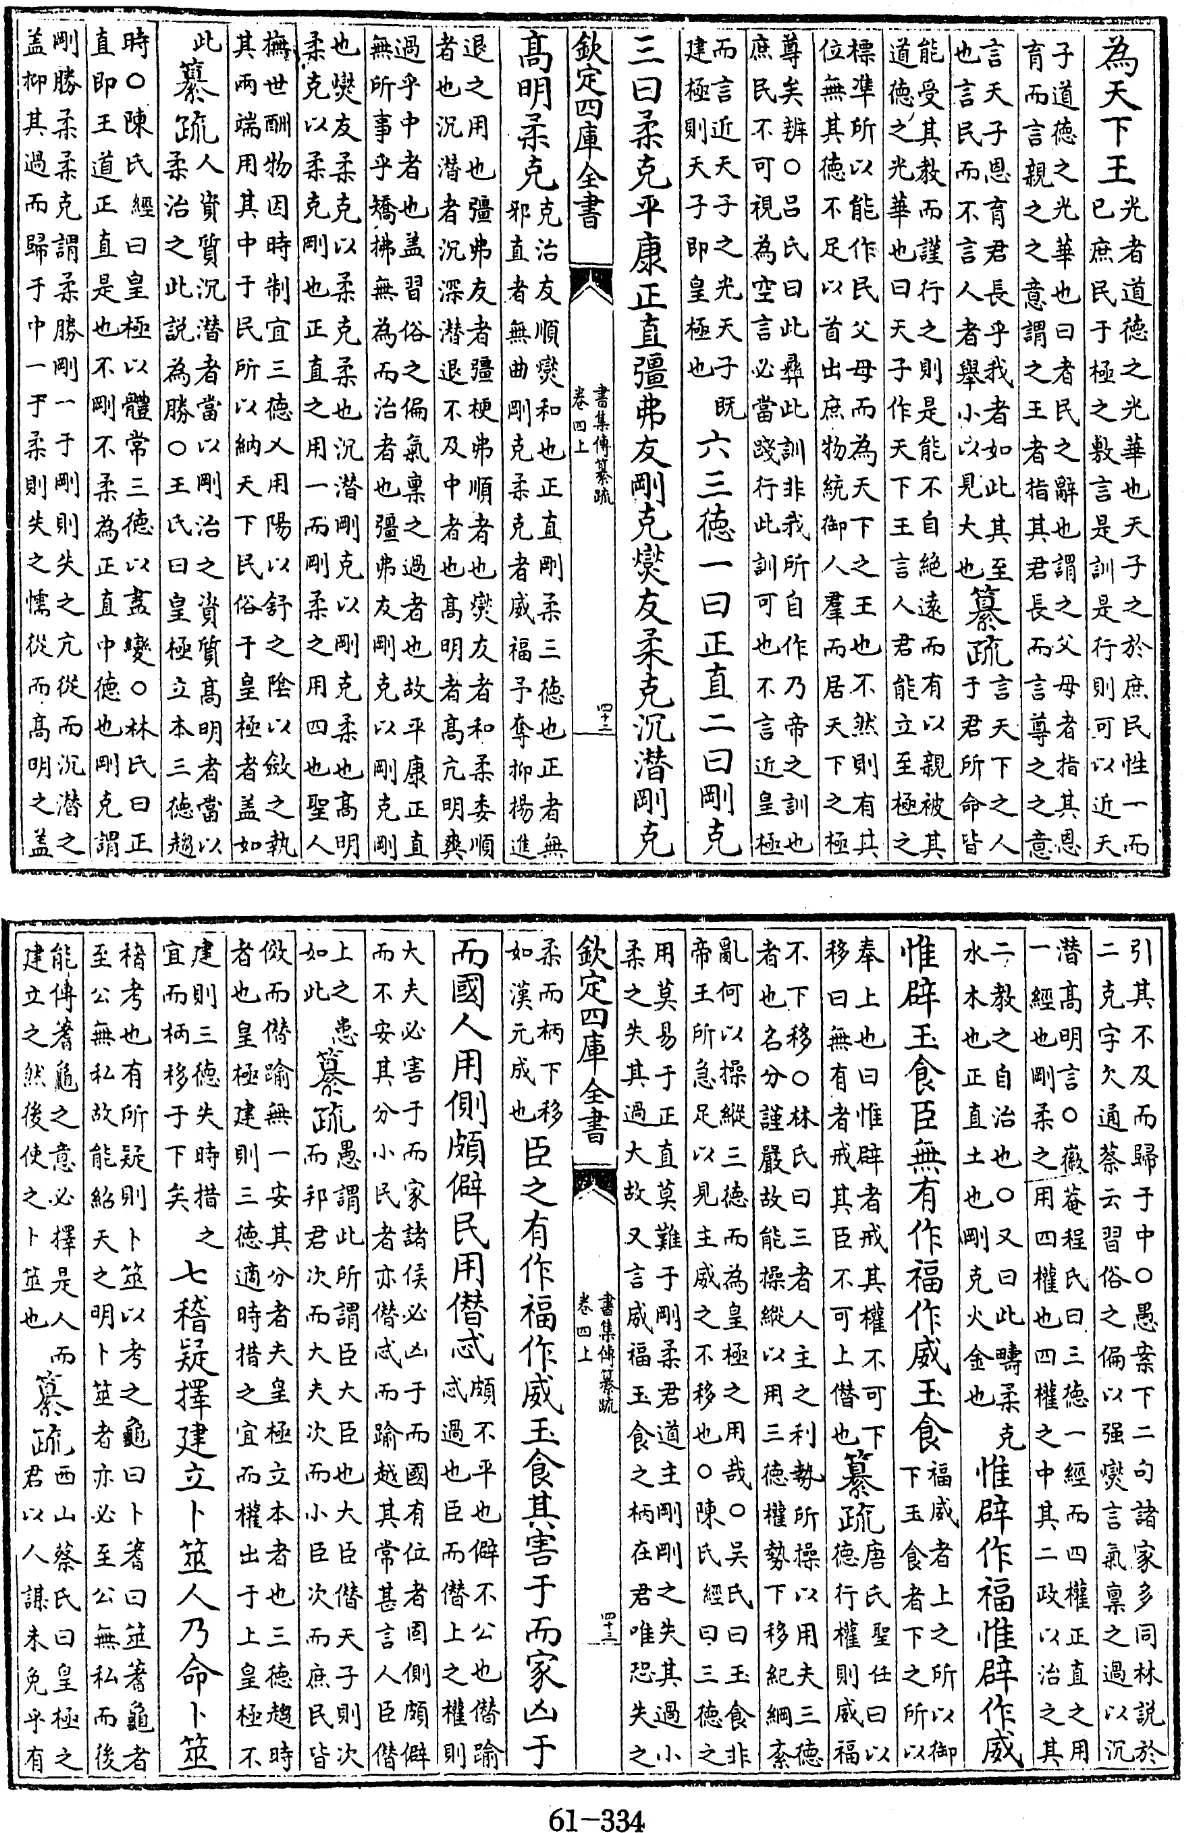 為天下王光者道德之光華也天子之於庶民性一而
已庶民于極之敷言是訓是行則可以近天
子道德之光華也曰者民之辭也謂之父母者指其恩
育而言親之之意謂之王者指其君長而言尊之之意
言天子恩育君長乎我者如此其至
也言民而不言人者舉小以見大也
纂疏言天下之人
于君所命皆
能受其教而謹行之則是能不自絶遠而有以親被其
道德之光華也曰天子作天下王言人君能立至極之
標準所以能作民父母而為天下之王也不然則有其
位無其德不足以首出庶物統御人羣而居天下之極
尊矣辨○吕氏曰此彞此訓非我所自作乃帝之訓也
庶民不可視為空言必當踐行此訓可也不言近皇極
而言近天子之光天子既
建極則天子即皇極也
六三徳一曰正直二曰剛克
三曰柔克平康正直彊弗友剛克燮友柔克沉潛剛克
欽定四庫全書
書集傳纂疏
卷四上
四十三
髙明柔克克治友順燮和也正直剛柔三徳也正者無
邪直者無曲剛克柔克者威福予奪抑揚進
退之用也彊弗友者彊梗弗順者也燮友者和柔委順
者也沉潛者沉深潛退不及中者也髙明者髙亢明爽
過乎中者也盖習俗之偏氣稟之過者也故平康正直
無所事乎矯拂無為而治者也彊弗友剛克以剛克剛
也燮友柔克以柔克柔也沉潛剛克以剛克柔也髙明
柔克以柔克剛也正直之用一而剛柔之用四也聖人
撫世酬物因時制宜三徳乂用陽以舒之陰以斂之執
其兩端用其中于民所以納天下民俗于皇極者盖如
此纂疏人資質沉潛者當以剛治之資質髙明者當以
柔治之此説為勝○王氏曰皇極立本三徳趨
時○陳氏經曰皇極以體常三徳以盡變○林氏曰正
直即王道正直是也不剛不柔為正直中徳也剛克謂
剛勝柔柔克謂柔勝剛一于剛則失之亢從而沉潛之
盖抑其過而歸于中一于柔則失之懦從而髙明之盖
引其不及而歸于中○愚案下二句諸家多同林説於
二克字欠通蔡云習俗之偏以强燮言氣稟之過以沉
潛髙明言○徽菴程氏曰三徳一經而四權正直之用
一經也剛柔之用四權也四權之中其二政以治之其
二教之自治也○又曰此疇柔克
水木也正直土也剛克火金也
惟辟作福惟辟作威
惟辟玉食臣無有作福作威玉食福威者上之所以御
下玉食者下之所以
奉上也曰惟辟者戒其權不可下
移曰無有者戒其臣不可上僭也
纂疏唐氏聖任曰以
德行權則威福
不下移○林氏曰三者人主之利勢所操以用夫三德
者也名分謹嚴故能操縱以用三徳權勢下移紀綱紊
亂何以操縱三徳而為皇極之用哉○吴氏曰玉食非
帝王所急足以見主威之不移也○陳氏經曰三徳之
用莫易于正直莫難于剛柔君道主剛剛之失其過小
柔之失其過大故又言威福玉食之柄在君唯恐失之
欽定四庫全書
書集傳纂疏
卷四上
四十三
柔而柄下移
如漢元成也
臣之有作福作威玉食其害于而家凶于
而國人用側頗僻民用僭忒頗不平也僻不公也僭踰
忒過也臣而僭上之權則
大夫必害于而家諸侯必凶于而國有位者固側頗僻
而不安其分小民者亦僭忒而踰越其常甚言人臣僭
上之患
如此
纂疏愚謂此所謂臣大臣也大臣僭天子則次
而邦君次而大夫次而小臣次而庶民皆
傚而僭踰無一安其分者夫皇極立本者也三徳趨時
者也皇極建則三徳適時措之宜而權出于上皇極不
建則三徳失時措之
宜而柄移于下矣
七稽疑擇建立卜筮人乃命卜筮
稽考也有所疑則卜筮以考之龜曰卜蓍曰筮蓍龜者
至公無私故能紹天之明卜筮者亦必至公無私而後
能傳蓍龜之意必擇是人而
建立之然後使之卜筮也
纂疏西山蔡氏曰皇極之
君以人謀未免乎有
61-334